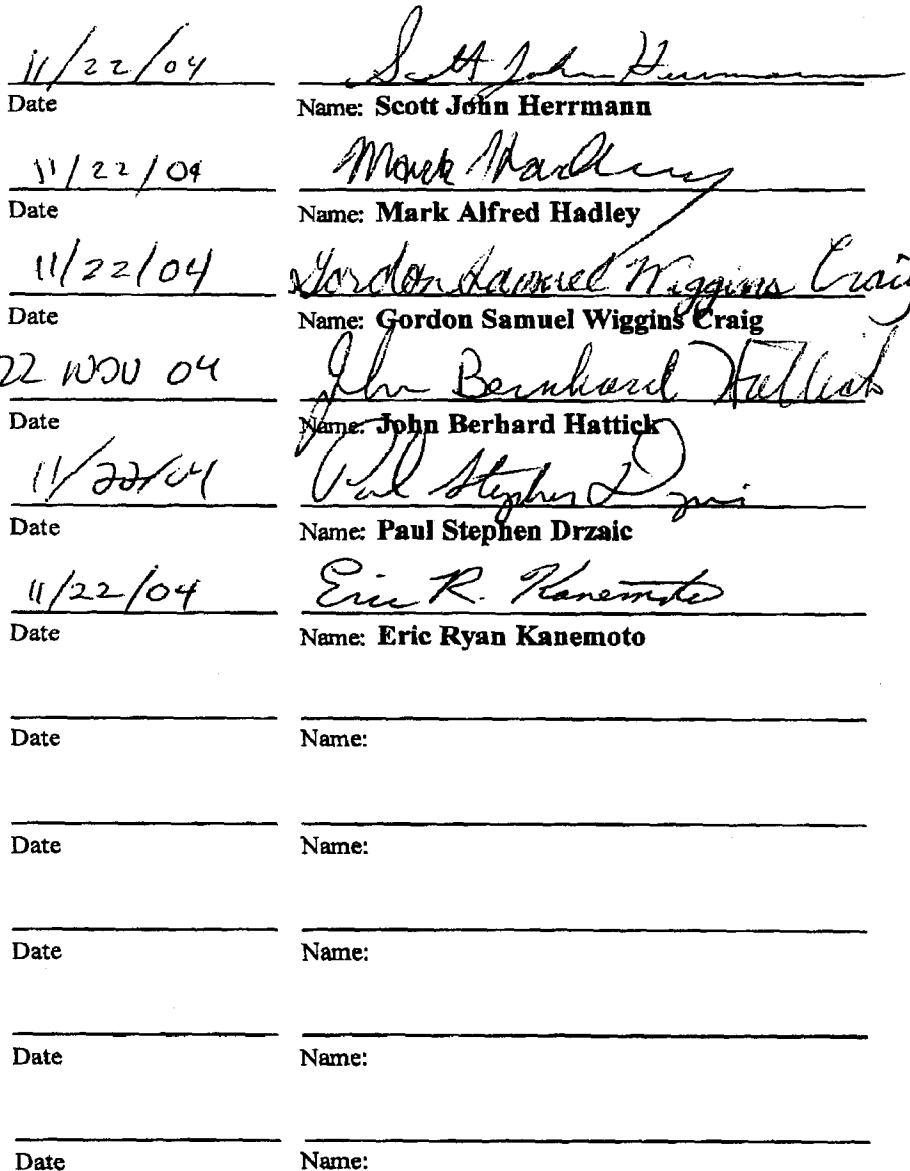 11/22/04 Scott John Herrmann
Date Name: Scott John Herrmann
11/22/04 Mark Hadley
Date Name: Mark Alfred Hadley
11/22/04 Gordon Samuel Wiggins Craig
Date Name: Gordon Samuel Wiggins Craig
22 NOV 04 John Bernhard Hattick
Date Name: John Berhard Hattick
11/22/04 Paul Stephen Drzaic
Date Name: Paul Stephen Drzaic
11/22/04 Eric R. Kanemoto
Date Name: Eric Ryan Kanemoto
Date Name:
Date Name:
Date Name:
Date Name:
Date Name: